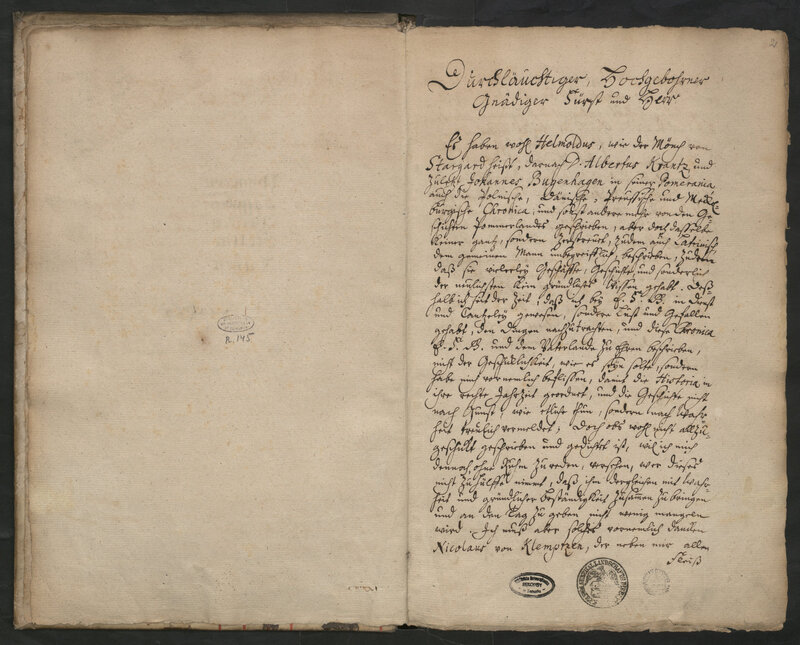 R. 145
2
Durchläuchtiger, Hochgebohrner
Gnädiger Fürst und Herr
Es haben wohl Helmoldus, wie der Mönch von
Stargard heist, darnach D. Albertus Krantz, und
zuletzt Johannes Bugenhagen in seiner Pomerania
auch die Polnische, Dänische, Preussische und Meckl-
burgische Chronica, und sonst andere mehr von den Ge-
schichten Pommerlandes geschrieben, aber doch dasselbe
keiner gantz, sondern zerstreuet, zudem auch Lateinisch
dem gemeinen Mann unbegreifflich, beschrieben, zudem
daß sie vielerley Geschäffte, Geschichte, und sonderlich
der neulichsten kein gründliches Wissen gehabt. Deß
halb ich seit der Zeit, daß ich bey E. F. G. in Dienst
und Cantzeley gewesen, sondere Lust und Gefallen
gehabt, den Dingen nachzutrachten, und diese Chronica
E. F. G. und dem Vaterlande zu Ehren beschrieben,
nicht der Geschicklichkeit, wie es seyn solte, sondern
habe mich vornemlich beflissen, damit die Historia in
ihre rechte Jahrzeit geordnet, und die Geschichte nicht
nach Kunst, wie etliche thun, sondern nach Wahr
heit treulich vermeldet; Doch obs wohl nicht allzu
geschickt geschrieben und gedichtet ist, wil ich mich
dennoch, ohne Ruhm zu reden, versehen, wer dieses
nicht zu Hülffe nimmt, daß ihm dergleichen mit Wahr
heit und gründlicher Beständigkeit zusammen zu bringen
und an den Tag zu geben nicht wenig mangeln
wird. Ich muß aber solches vornemlich dancken
Nicolaus von Klemptzen, der neben mir allen
Fleiß